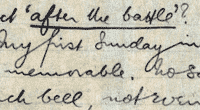 ct 'after the battle'?
My first Sunday in
memorable. No so
ch bell, not even